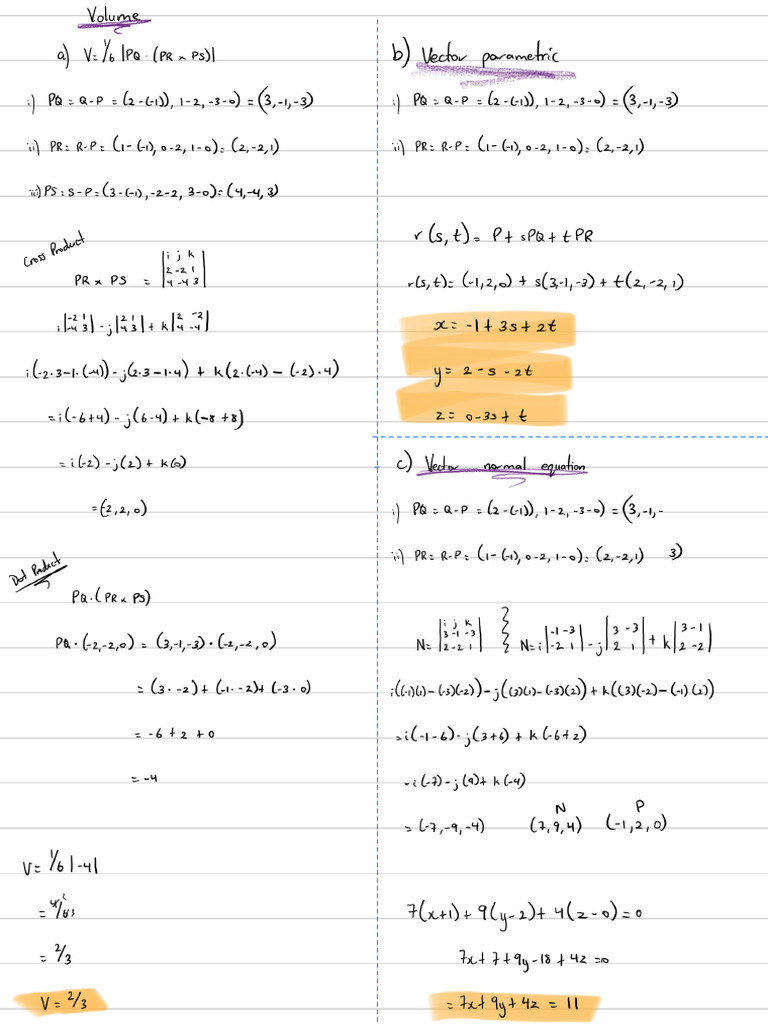 Volume
a) V = 1/6 |PQ · (PR × PS)|
i) PQ = Q-P = (2-(-1)), 1-2, -3-0) = (3,-1,-3)
ii) PR = R-P = (1-(-1), 0-2, 1-0) = (2,-2,1)
iii) PS = S-P = (3-(-1), -2-2, 3-0) = (4,-4,3)
Cross Product
PR × PS = |i j k|
|2 -2 1|
|4 -4 3|
i|-2 1| - j|2 1| + k|2 -2|
|-4 3| |4 3| |4 -4|
i(-2·3-1·(-4)) - j(2·3-1·4) + k(2·(-4) - (-2)·4)
= i(-6+4) - j(6-4) + k(-8+8)
= i(-2) - j(2) + k(0)
= (-2,2,0)
Dot Product
PQ · (PR × PS)
PQ · (-2,-2,0) = (3,-1,-3) · (-2,-2,0)
= (3·-2) + (-1·-2) + (-3·0)
= -6 + 2 + 0
= -4
V = 1/6 |-4|
= 4/6 2/3
= 2/3
V = 2/3
b) Vector parametric
i) PQ = Q-P = (2-(-1)), 1-2, -3-0) = (3,-1,-3)
ii) PR = R-P = (1-(-1), 0-2, 1-0) = (2,-2,1)
r(s,t) = P + sPQ + tPR
r(s,t) = (-1,2,0) + s(3,-1,-3) + t(2,-2,1)
x = -1 + 3s + 2t
y = 2 - s - 2t
z = 0 - 3s + t
c) Vector normal equation
i) PQ = Q-P = (2-(-1)), 1-2, -3-0) = (3,-1,-
ii) PR = R-P = (1-(-1), 0-2, 1-0) = (2,-2,1) 3)
N = |i j k| N = i|-1 -3| - j|3 -3| + k|3 -1|
|3 -1 -3| |-2 1| |2 1| |2 -2|
|2 -2 1|
i((-1)(1) - (-3)(-2)) - j((3)(1) - (-3)(2)) + k((3)(-2) - (-1)(2))
= i(-1-6) - j(3+6) + k(-6+2)
= i(-7) - j(9) + k(-4)
N P
= (-7,-9,-4) (7,9,4) (-1,2,0)
7(x+1) + 9(y-2) + 4(z-0) = 0
7x + 7 + 9y - 18 + 4z = 0
= 7x + 9y + 4z = 11